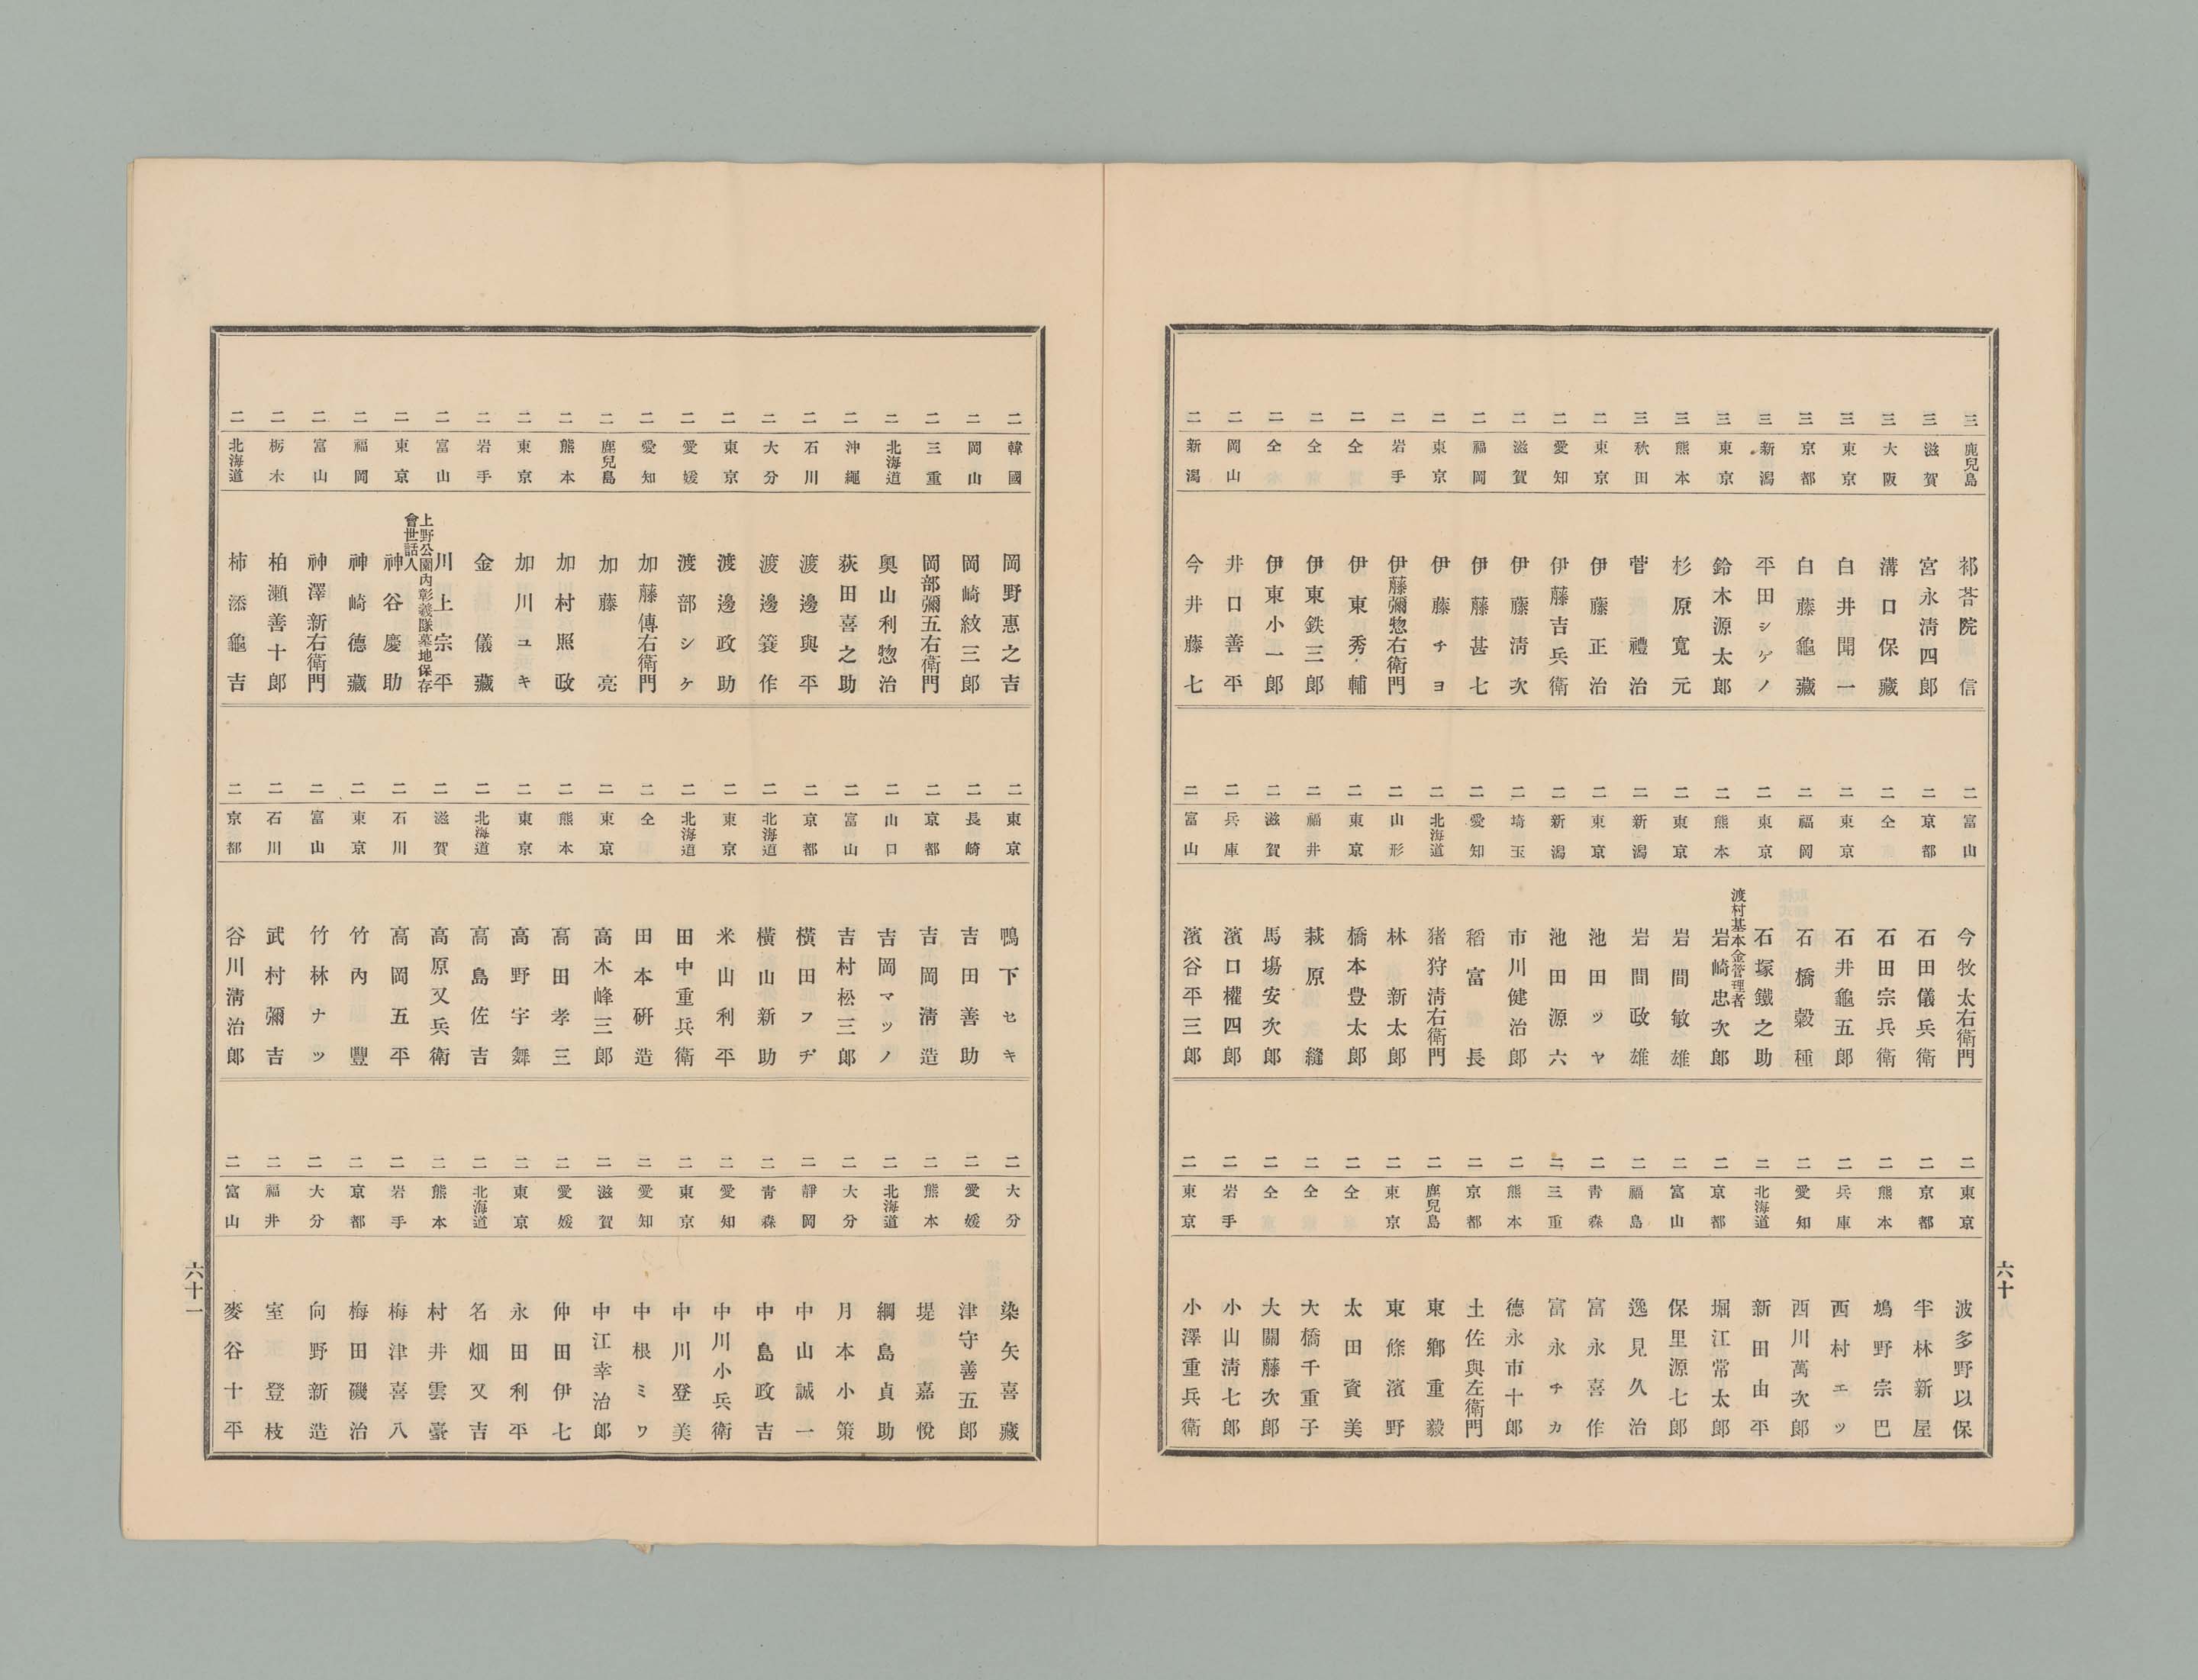 三 鹿兒島 祁荅院信
三 滋賀 宮永淸四郎
三 大阪 溝口保藏
三 東京 白井開一
三 京都 白藤龜藏
三 新潟 平田シゲノ
三 東京 鈴木源太郎
三 熊本 杉原寬元
三 秋田 菅禮治
二 東京 伊藤正治
二 愛知 伊藤吉兵衛
二 滋賀 伊藤淸次
二 福岡 伊藤甚七
二 東京 伊藤チヨ
二 岩手 伊藤彌惣右衛門
二 仝 伊東秀輔
二 仝 伊東鉄三郎
二 仝 伊東小一郎
二 岡山 井口善平
二 新潟 今井藤七
二 富山 今牧太右衛門
二 京都 石田儀兵衛
二 仝 石田宗兵衛
二 東京 石井龜五郎
二 福岡 石橋穀種
二 東京 石塚鐵之助
二 熊本 渡村基本金管理者 岩崎忠次郎
二 東京 岩間敏雄
二 新潟 岩間政雄
二 東京 池田ツヤ
二 新潟 池田源六
二 埼玉 市川健治郎
二 愛知 稻富長
二 北海道 猪狩淸右衛門
二 山形 林新太郎
二 東京 橋本豊太郎
二 福井 萩原縫
二 滋賀 馬塲安次郎
二 兵庫 濱口權四郎
二 富山 濱谷平三郎
二 東京 波多野以保
二 京都 半林新屋
二 熊本 鳩野宗巴
二 兵庫 西村エツ
二 愛知 西川萬次郎
二 北海道 新田由平
二 京都 堀江常太郎
二 富山 保里源七郎
二 福島 逸見久治
二 青森 富永喜作
二 三重 富永チカ
二 熊本 德永市十郎
二 京都 土佐與左衛門
二 鹿兒島 東鄕重毅
二 東京 東條濱野
二 仝 太田資美
二 仝 大橋千重子
二 仝 大關藤次郎
二 岩手 小山淸七郎
二 東京 小澤重兵衛
六十
二 韓國 岡野惠之吉
二 岡山 岡崎紋三郎
二 三重 岡部彌五右衛門
二 北海道 奧山利惣治
二 沖繩 荻田喜之助
二 石川 渡邊與平
二 大分 渡邊簑作
二 東京 渡邊政助
二 愛媛 渡部シゲ
二 愛知 加藤傳右衛門
二 鹿兒島 加藤亮
二 熊本 加村照政
二 東京 加川ユキ
二 岩手 金儀藏
二 富山 川上宗平
二 東京 上野公園內彰義隊墓地保存會世話人 神谷慶助
二 福岡 神崎德藏
二 富山 神澤新右衛門
二 栃木 柏瀨善十郎
二 北海道 柿添龜吉
二 東京 鴨下セキ
二 長崎 吉田善助
二 京都 吉岡淸造
二 山口 吉岡マツノ
二 富山 吉村松三郎
二 京都 橫田フヂ
二 北海道 橫山新助
二 東京 米山利平
二 北海道 田中重兵衛
二 仝 田本硏造
二 東京 高木峰三郎
二 熊本 高田孝三
二 東京 高野宇舞
二 北海道 高島佐吉
二 滋賀 高原又兵衛
二 石川 高岡五平
二 東京 竹內豐
二 富山 竹林ナツ
二 石川 武村彌吉
二 京都 谷川淸治郎
二 大分 染矢喜藏
二 愛媛 津守善五郎
二 熊本 堤嘉悅
二 北海道 綱島貞助
二 大分 月本小策
二 靜岡 中山誠一
二 靑森 中島政吉
二 愛知 中川小兵衛
二 東京 中川登美
二 愛知 中根ミワ
二 滋賀 中江幸治郎
二 愛媛 仲田伊七
二 東京 永田利平
二 北海道 名畑又吉
二 熊本 村井雲臺
二 岩手 梅津喜八
二 京都 梅田磯治
二 大分 向野新造
二 福井 室登枝
二 富山 麥谷十平
六十一